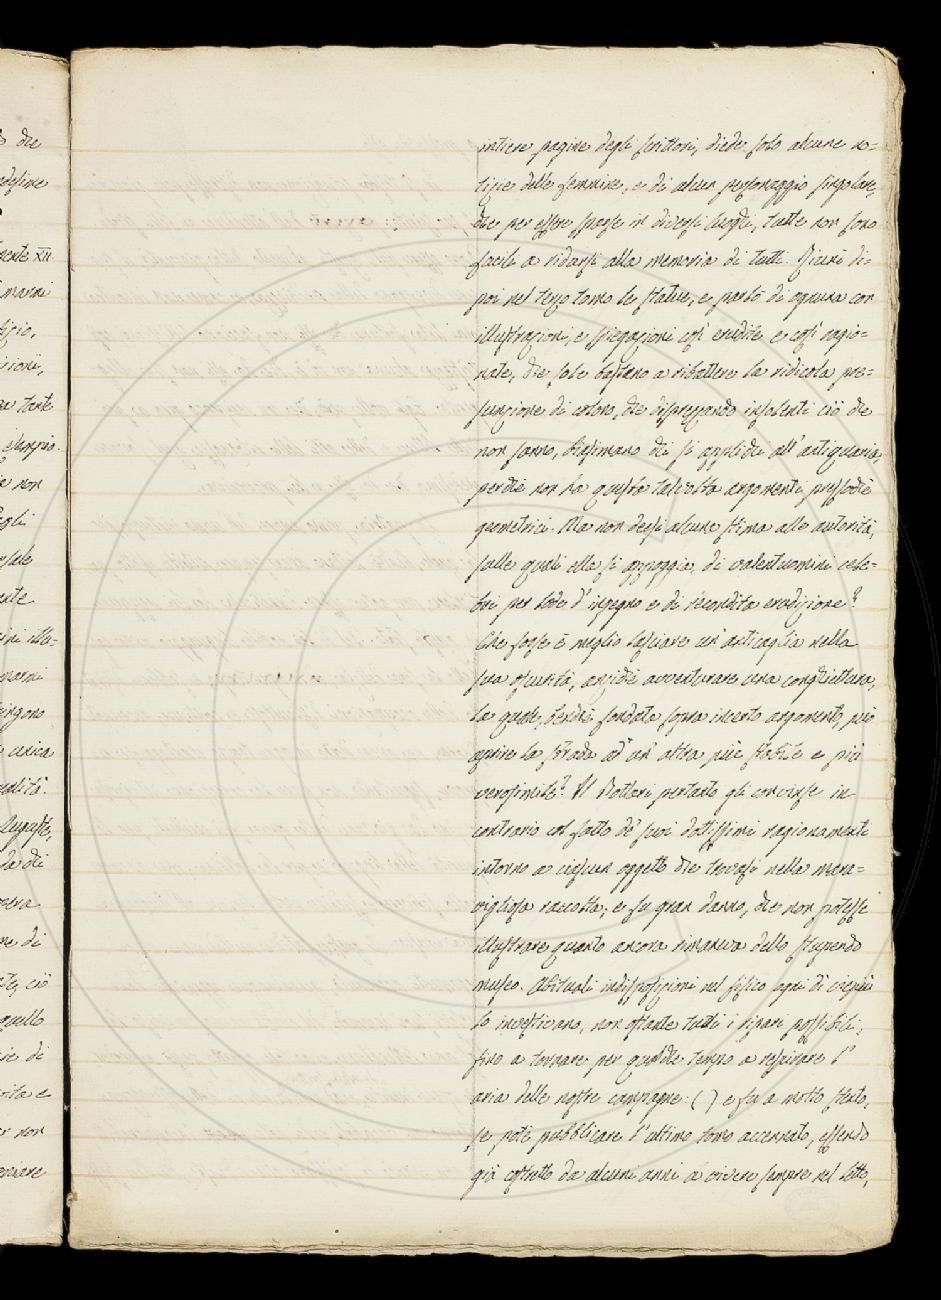 intiere pagine degli scrittori, diede solo alcune no=
tizie delle femmine, e di alcun personaggio singolare,
che per essere sparse in diversi luoghi, tutte non sono
facili a ridursi alla memoria di tutti. Ficuri di=
poi nel terzo tomo le statue, e parlò di ognuna con
illustrazioni, e spiegazioni così erudite e così ragio=
nate, che sole bastano a ribattere la ridicola pre=
sunzione di coloro, che disprezzando insolenti ciò che
non sanno, biasimano chi si applichi all'antiquaria,
perchè non ha questa talvolta argomenti pressochè
geometrici. Ma non dessi alcuna stima alle autorità,
sulle quali ella si appoggia, di valentuomini cele=
bri per lode d'ingegno e di recondita erudizione?
Che forse è meglio lasciare un'anticaglia nella
sua oscurità, anzichè avventurare una conghiettura,
la quale, benchè fondata sopra incerto argomento, può
aprire la strada ad un'altra più stabile e più
verosimile? Il Bottari pertanto gli convinse in
contrario col fatto de' suoi dottissimi ragionamenti
intorno a ciascun oggetto che trovasi nella mara=
vigliosa raccolta; e fu gran danno, che non potesse
illustrare quanto ancora rimaneva dello stupendo
museo. Abituali indisposizioni nel fisico ogni dì vieppiù
lo investivano, non ostante tutti i ripari possibili,
fino a tornare per qualche tempo a respirare l'
aria delle nostre campagne: ( ) e fu a molto stento,
se potè pubblicare l'ultimo tomo accennato, essendo
già costretto da alcuni anni a vivere sempre nel letto,